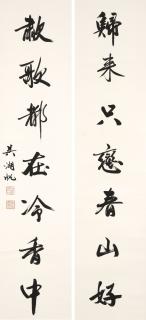 歸来只戀春山好
歌都在冷香中
吳湖帆